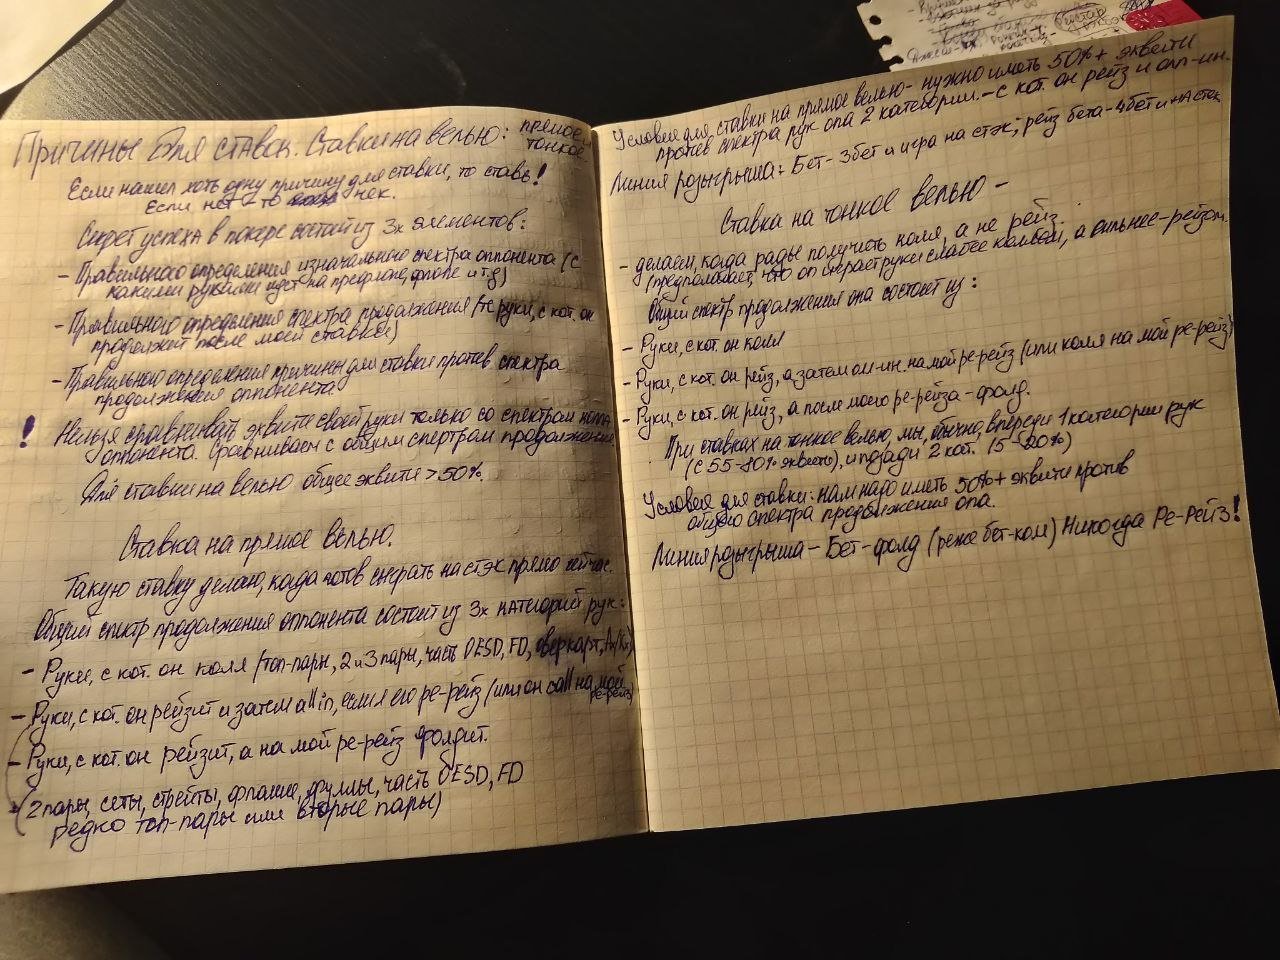 Причины для ставок. Ставки на велью: прямое и
тонкое.
Если нашел хоть одну причину для ставки, то ставь!
Если нет – то чек.
Секрет успеха в покере состоит из 3х элементов:
- Правильного определения изначального спектра оппонента (с
какими руками идет на префлопе, флопе и т.д)
- Правильного определения спектра продолжения (те руки, с кот. он
продолжит после моей ставки)
- Правильного определения причины для ставки против спектра
продолжения оппонента.
! Нельзя сравнивать эквити своей руки только со спектром колла
оппонента. Сравниваем с общим спектром продолжения
Для ставки на велью общее эквити > 50%.
Ставка на прямое велью.
Такую ставку делаю, когда готов сыграть на стэк прямо сейчас.
Общий спектр продолжения оппонента состоит из 3х категорий рук:
- Руки, с кот. он колл (топ-пары, 2 и 3 пары, часть OESD, FD, оверкарт, Ax/Kx)
- Руки, с кот. он рейзит и затем all in, если я его ре-рейз (или он call на мой
ре-рейз)
- Руки, с кот. он рейзит, а на мой ре-рейз фолдит.
(2 пары, сеты, стрейты, флэши, фуллы, часть OESD, FD
редко топ-пары или вторые пары)
Условия для ставки на прямое велью – нужно иметь 50%+ эквити
против спектра рук опа 2 категории – с кот. он рейз и олл-ин.
Линия розыгрыша: Бет - 3бет и игра на стэк; рейз бета - 4бет и на стек
Ставка на тонкое велью –
- делаем, когда рады получить колл, а не рейз.
(предполагает, что оп играет руки слабее коллом, а сильнее – рейзом.
Общий спектр продолжения опа состоит из:
- Руки, с кот. он колл
- Руки, с кот. он рейз, а затем олл-ин на мой ре-рейз (или колл на мой ре-рейз)
- Руки, с кот. он рейз, а после моего ре-рейза - фолд.
При ставках на тонкое велью, мы, обычно, впереди 1 категории рук
(с 55-80% эквити), и позади 2 кат. (5-20%)
Условия для ставки: нам надо иметь 50%+ эквити против
общего спектра продолжения опа.
Линия розыгрыша – Бет-фолд (реже бет-колл) Никогда Ре-Рейз!